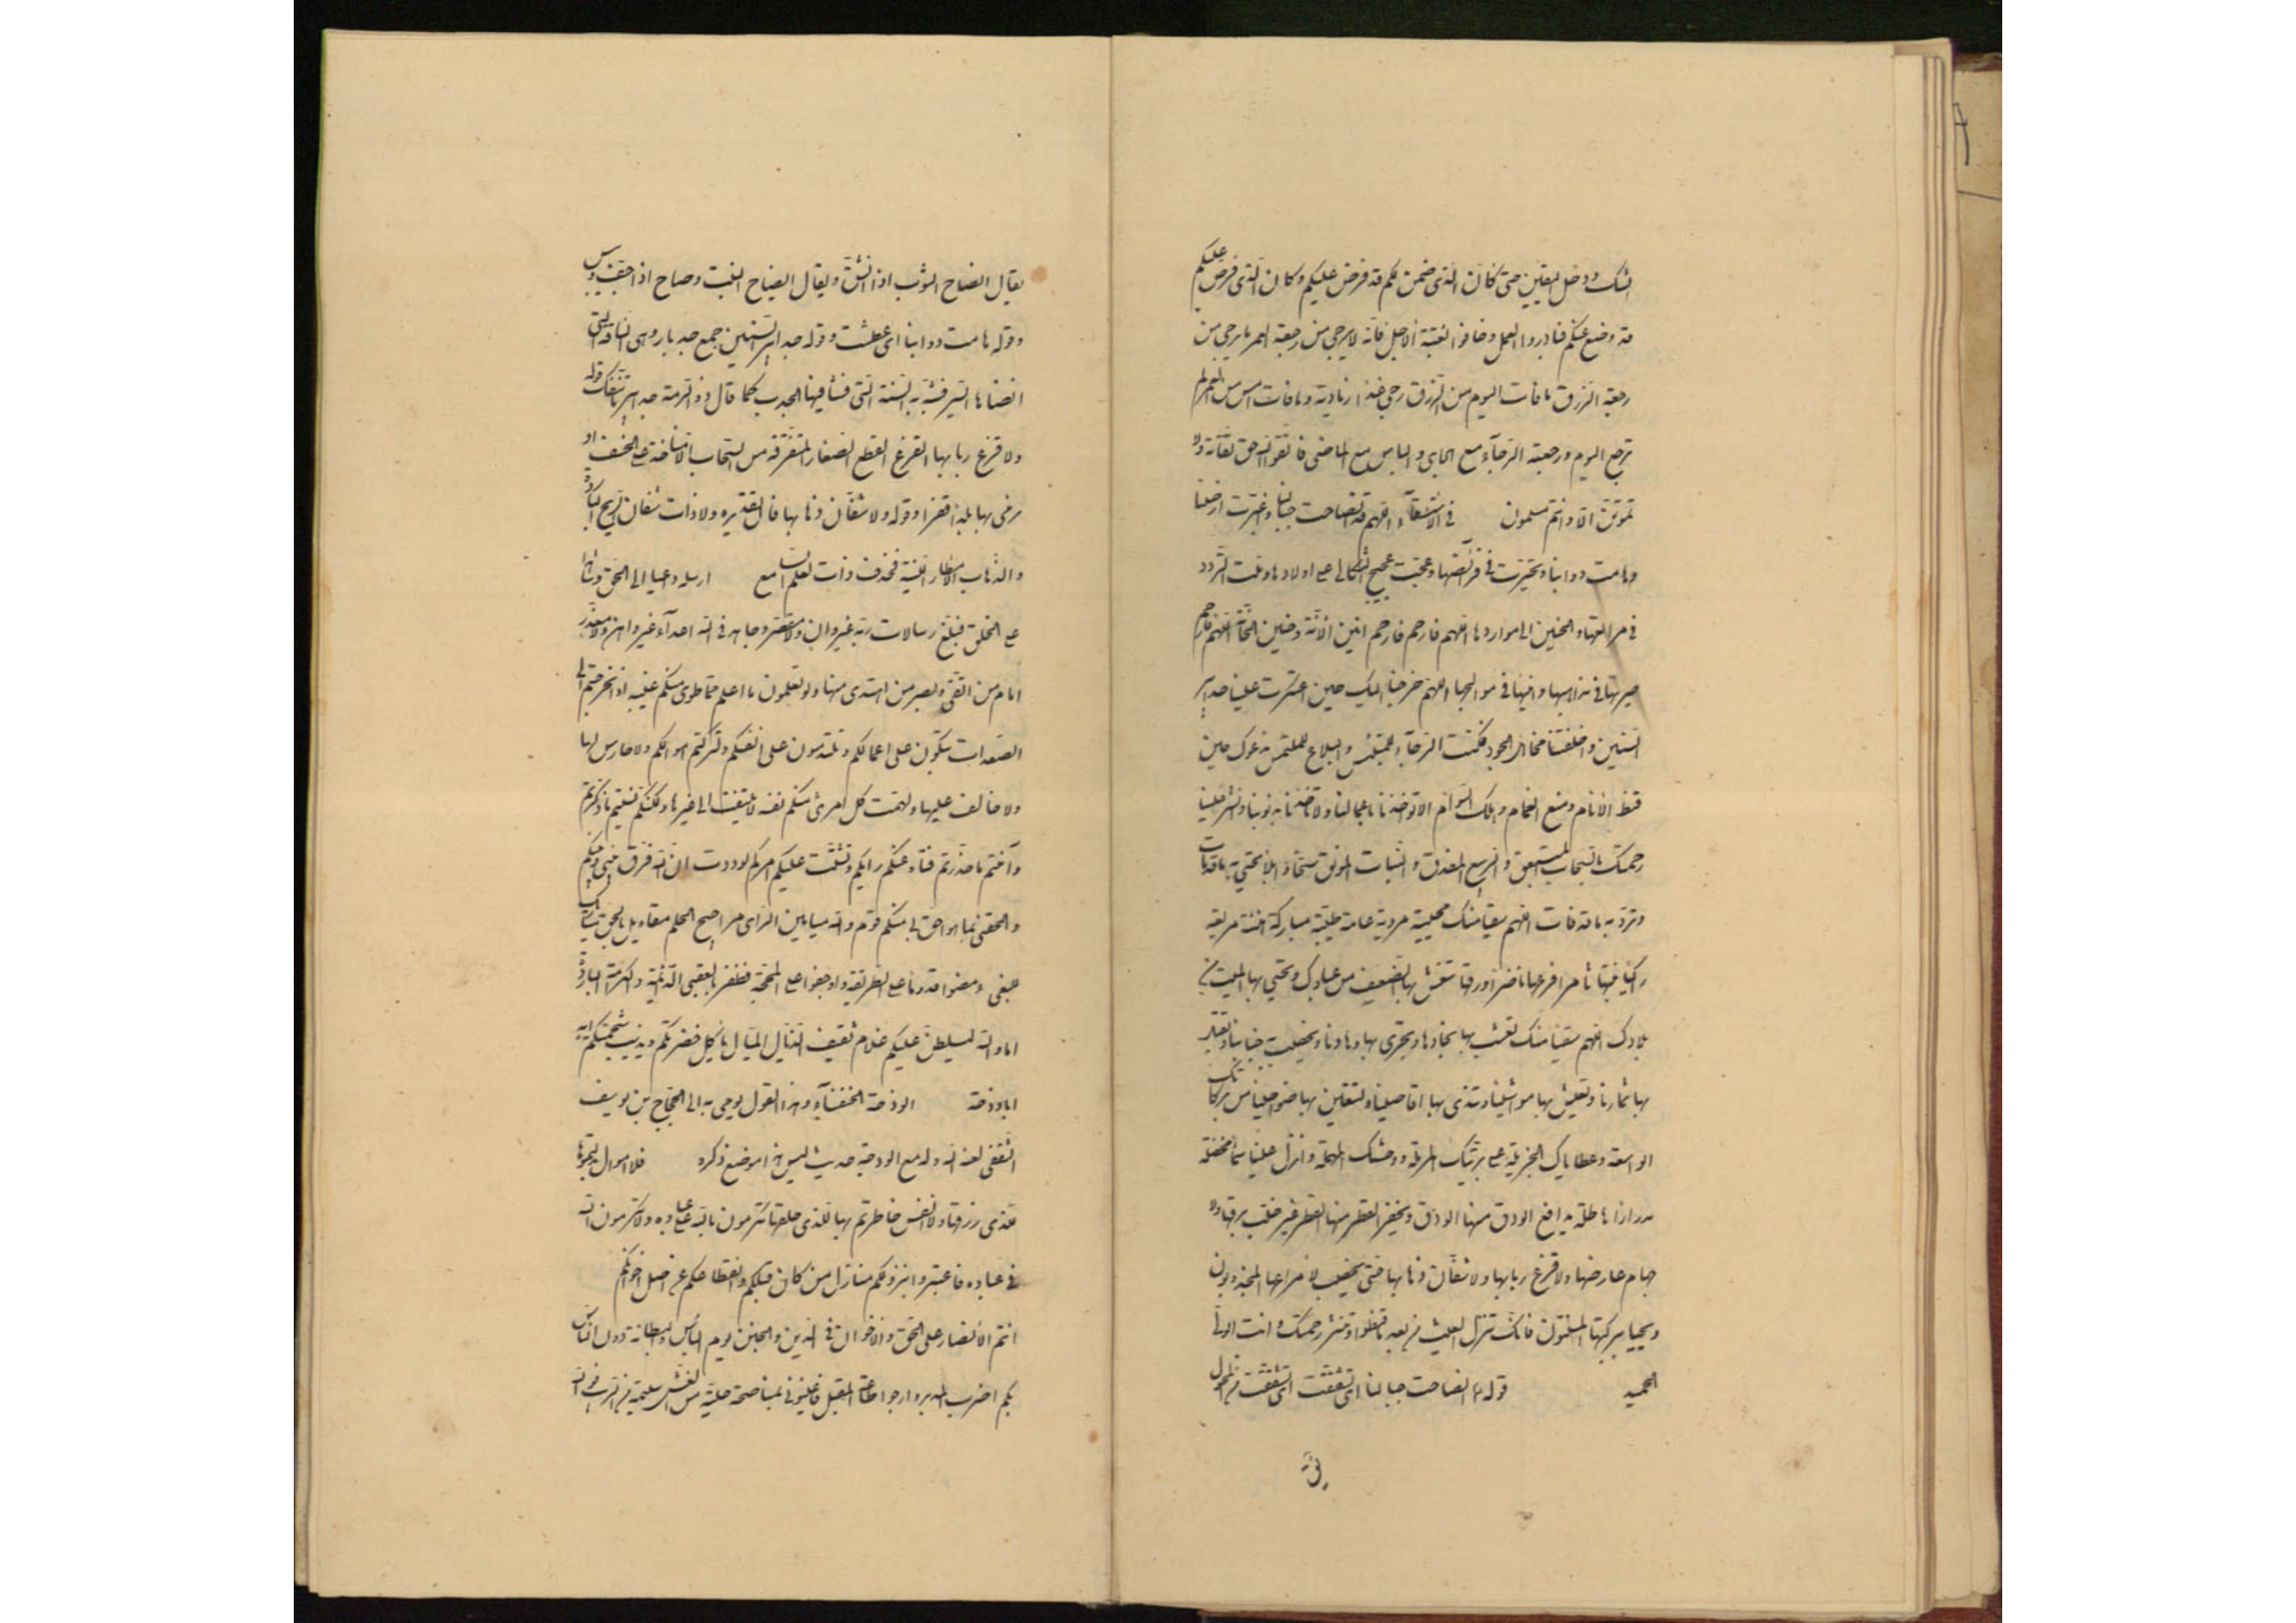 الشك و دخل اليقين حتى كان الذى ضمن لكم قد فرض عليكم و كان الذى فرض عليكم
قد وضع عنكم فبادروا العمل و خافوا بغتة الأجل فانه لا يرجى من رجعة العمر ما يرجى من
رجعة الرزق ما فات اليوم من الرزق رجى غدا زيادته و ما فات امس من العمر لم
ترجع اليوم رجعته الرجآء مع الجاى و اليأس مع الماضى فاتقوا الله حق تقاته ولا
تموتن الا و انتم مسلمون في الاستسقآء اللهم قد انصاحت جبالنا و اغبرت ارضنا
و هامت دوابنا و تحيرت في مرابضها و عجت عجيج الثكالى على اولادها و ملت التردد
في مراتعها و الحنين الى مواردها اللهم فارحم فارحم انين الآنة و حنين الحآنة اللهم فارحم
حيرتها في مذاهبها و انينها في موالجها اللهم خرجنا اليك حين اعتكرت علينا حدابير
السنين و اخلفتنا مخائل الجود فكنت الرجآء للمبتئس و البلاغ للملتمس ندعوك حين
قنط الأنام و منع الغمام و هلك السوام الا تؤاخذنا باعمالنا ولا تأخذنا بذنوبنا و انشر علينا
رحمتك بالسحاب المنبعق و الربيع المغدق و النبات المونق سحا وابلا تحيى به ما قد مات
و ترد به ما قد فات اللهم سقيا منك محيية مروية عامة طيبة مباركة هنيئة مريعة
زاكيا نبتها ثامرا فرعها ناضرا ورقها تنعش بها الضعيف من عبادك و تحيى بها الميت من
بلادك اللهم سقيا منك تعشب بها نجادنا و تجرى بها وهادنا و يخصب بها جنابنا و تقبل
بها ثمارنا و تعيش بها مواشينا و تندى بها اقاصينا و تستعين بها ضواحينا من بركاتك
الواسعة و عطاياك الجزيلة على بريتك المرملة و وحشك المهملة و انزل علينا سمآء مخضلة
مدرارا هاطلة يدافع الودق منها الودق و يحفز القطر منها القطر غير خلب برقها ولا
جهام عارضها ولا قزع ربابها ولا شفان ذهابها حتى يخصب لامراعها المجدبون
و يحيى ببركتها المسنتون فانك تنزل الغيث من بعد ما قنطوا و تنشر رحمتك و انت الولى
الحميد قوله انصاحت جبالنا اى تشققت من المحول
يقال
يقال انصاح الثوب اذا انشق و يقال انصاح النبت و صاح اذا جف و يبس
و قوله هامت دوابنا اى عطشت و قوله حدابير السنين جمع حدبار و هى الناقة التى
انضاها السير فشبه بها السنة التى فشا فيها الجدب كما قال ذو الرمة حدابير ما تنفك قوله
ولا قزع ربابها القزع القطع الصغار المتفرقة من السحاب الا مناخة على الخسف او
نرمى بها بلدا قفرا و قوله ولا شفان ذهابها فان تقديره ولا ذات شفان الريح الباردة
و الذهاب الأمطار اللينة فحذف ذات لعلم السامع ارسله داعيا الى الحق و شاهدا
على الخلق فبلغ رسالات ربه غير وان ولا مقصر و جاهد في الله اعدآءه غير واهن ولا معذر
امام من اتقى و بصر من اهتدى منها و لو تعلمون ما اعلم مما طوى عنكم غيبه اذا لخرجتم الى
الصعدات تبكون على اعمالكم و تلتدمون على انفسكم و لتركتم اموالكم ولا حارس لها
ولا خالف عليها و لهمت كل امرئ منكم نفسه لا يلتفت الى غيرها و لكنكم نسيتم ما ذكرتم
و آمنتم ما حذرتم فتاه عنكم رايكم و تشتت عليكم امركم لوددت ان الله فرق بينى و بينكم
و الحقنى بما هو احق بى منكم قوم و الله ميامين الراى مراجيح الحلم مقاويل بالحق متاريك
للبغى مضوا قدما على الطريقة و اوجفوا على المحجة فظفروا بالعقبى الدائمة و الكرامة الباردة
اما و الله ليسلطن عليكم غلام ثقيف الذيال الميال ياكل خضرتكم و يذيب شحمتكم ايه
ابا وذحة الوذحة الخنفسآء و هذا القول يومى به الى الحجاج بن يوسف
الثقفى لعنه الله و له مع الوذحة حديث ليس هذا موضع ذكره فلا اموال بذلتموها
للذى رزقها ولا انفس خاطرتم بها للذى خلقها تكرمون بالله على عباده ولا تكرمون الله
في عباده فاعتبروا بنزولكم منازل من كان قبلكم و انقطاعكم عن اصل اخوانكم
انتم الأنصار على الحق و الأخوان في الدين و الجنن يوم البأس و البطانة دون الناس
بكم اضرب المدبر و ارجوا طاعة المقبل فاعينونى بمناصحة خلية من الغش سليمة من الريب فو الله